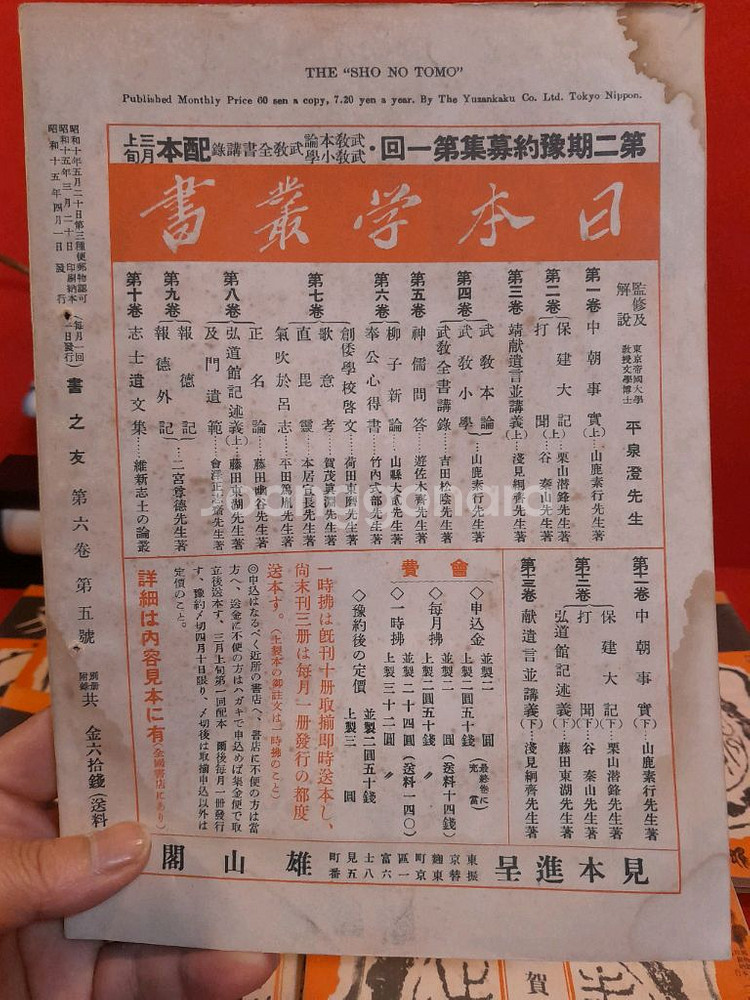 THE "SHO NO TOMO"
Published Monthly Price 60 sen a copy, 7.20 yen a year. By The Yuzankaku Co. Ltd. Tokyo Nippon.
第二期豫約募集第一回・武教本論 武教小學 武教全書講錄 配本三月上旬
日本学叢書
監修及解說 東京帝國大學教授文學博士 平泉澄先生
第一卷 中朝事實(上)…山鹿素行先生著
第二卷 保建大記(上)…栗山潜鋒先生著
打聞(上)…谷秦山先生著
第三卷 靖献遺言並講義(上)…淺見絅齊先生著
第四卷 武教本論
武教小學…山鹿素行先生著
武教全書講錄…吉田松陰先生著
第五卷 神儒問答…遊佐木齊先生著
第六卷 柳子新論…山縣大貳先生著
奉公心得書…竹内式部先生著
第七卷 創倭學校啓文…荷田東麿先生著
歌意考…賀茂真淵先生著
直毘靈…本居宣長先生著
氣吹於呂志…平田篤胤先生著
第八卷 正名論…藤田幽谷先生著
弘道館記述義(上)…藤田東湖先生著
及門遺範…會澤正志齋先生著
第九卷 報德記
報德外記…二宮尊德先生著
第十卷 志士遺文集…維新志士の論叢
第十一卷 中朝事實(下)…山鹿素行先生著
第十二卷 保建大記(下)…栗山潜鋒先生著
打聞(下)…谷秦山先生著
弘道館記述義(下)…藤田東湖先生著
第十三卷 献遺言並講義(下)…淺見絅齊先生著
會費
◇申込金 並製二圓
上製二圓五十錢(最終卷に充當)
◇每月拂 並製二圓(送料十四錢)
上製二圓五十錢〃
◇一時拂 並製二十四圓(送料一四〇)
上製三十二圓〃
◇豫約後の定價 並製二圓五十錢
上製三圓
一時拂は既刊十册取揃即時送本し、
尚末刊三册は每月一册發行の都度
送本す。(上製本の御註文は一時拂のこと)
◎申込はなるべく近所の書店へ、書店に不便の方は當
方へ、送金に不便の方はハガキで申込めば集金便で取
立後送本す、三月上旬第一回配本 爾後每月一册發行
す、豫約〆切四月十日限り、〆切後は取揃申込以外は
定價のこと。
詳細は内容見本に有(全國書店にあり)
見本進呈
東京麴町區富士見町
振替東京一六八五番
雄山閣
昭和十年五月二十日第三種便郵物認可
昭和十五年三月二十日印刷納本
昭和十五年四月一日發行
(每月一回一日發行)
書之友 第六卷 第五號
別册附錄共 金六拾錢(送料
賀